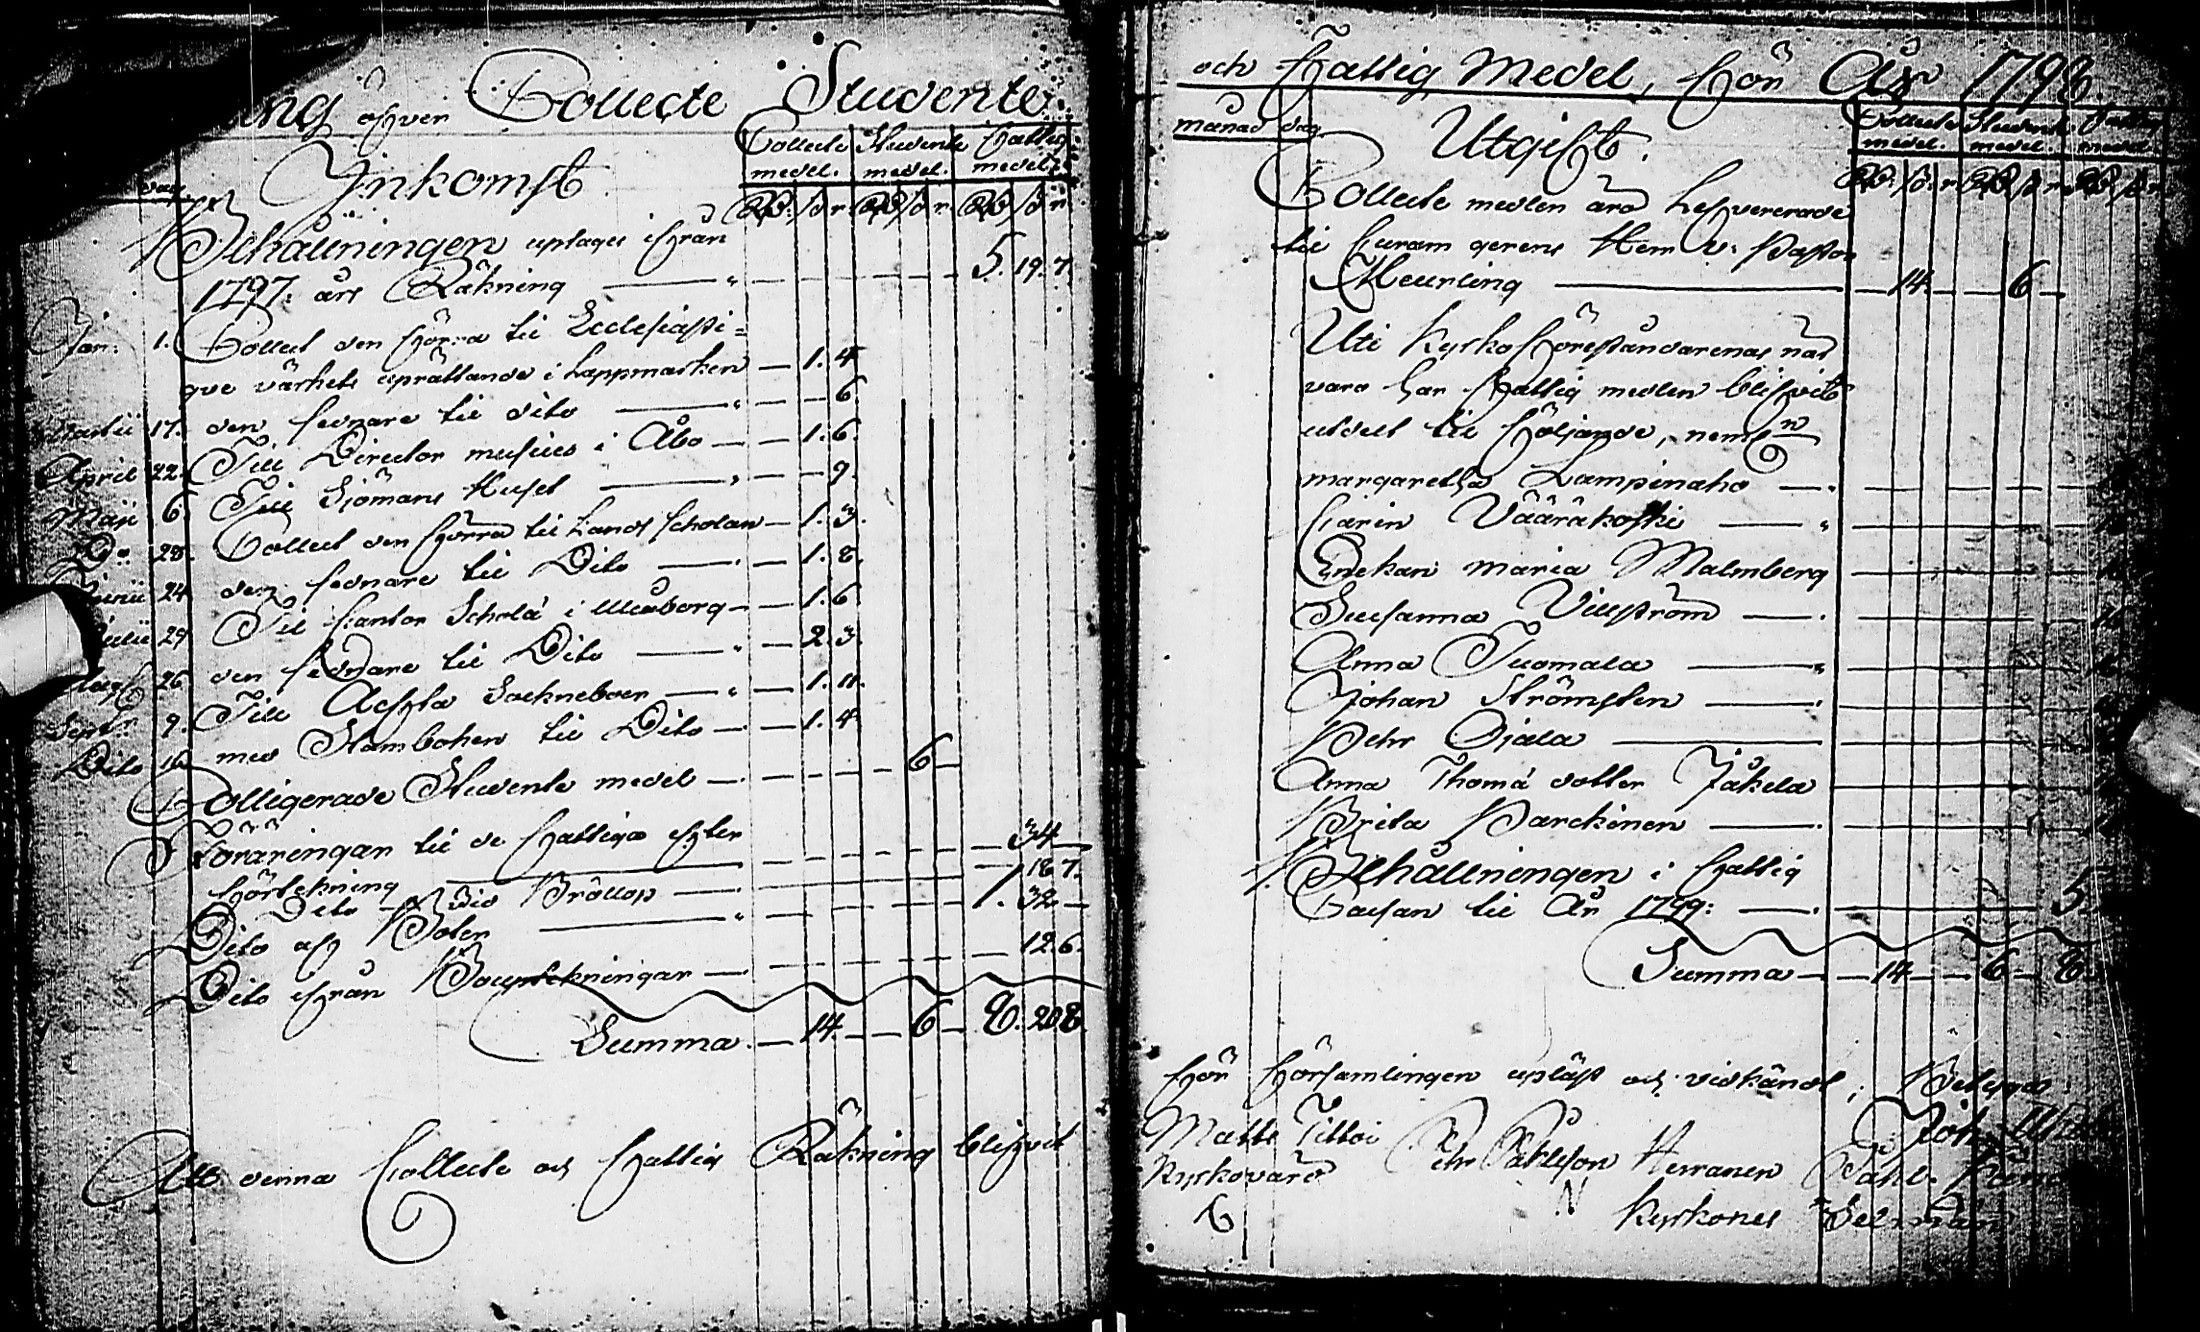 ing öfver Collecte Studente
Collecte Studente Fattig
medel. medel. medel.
dag Inkomst
Behållningen uptages ifrån
1797: års Räkning 5. 19. 7.
Jan: 1. Collect den förra til Ecclesiasti=
que värkets uprättande i Lappmarken 1. 4.
den sednare til dito 6.
Martii 17. Till Director musices i Åbo 1. 6.
April 22. Till Sjömans Huset 9.
Maji 6. Collect den förra til Lands scholan 1. 3.
Do 28. den sednare til Dito 1. 8.
Junii 24 Til Cantor Schola i Uleåborg 1. 6.
Julii 29 den sednare til Dito 2. 3.
Aug 26 Till Sockneboer 1. 11.
Septr: 9. med Stamboken til Dito 1. 4.
Dito 16
Colligerade Studente medel 6
Föräringar til de Fattiga efter
förtekning 34
Dito vid Bröllop 18 7.
Dito af Böter 1. 32
Dito ifrån Bouptekningar 12. 6.
Summa 14. 6 8. 20 8.
Att denna Collecte och Fattig Räkning blifvit
och Fattig Medel, för År 1798.
månad dag Utgift.
Collecte Studente Fattig
medel. medel. medel
Collecte medlen äro Lefvererade
til Curam gerens Herr V: Pastor
Heurling 14. 6
Uti Kyrko Föreståndarenas när
varo har Fattig medlen blifvit
utdelt til följande, neml
margaretha Lampinaho
Carin Vääräkoski
Enckan maria Malmberg
Susanna Villström
Anna Tuomala
Johan Strömsten
Pehr Ojala
Anna Thomä dotter Jåkela
Brita Parckinen
Behållningen i Fattig
Cassan til År 1799: 5
Summa 14 6 8
för församlingen upläst och vidkändt; Betyga
Matts Tittoi Pehr Påhlsson Herranen
Kyrkovärd Kyrkones Sexmän